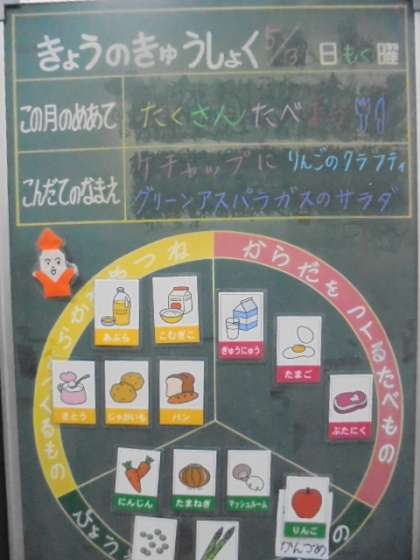 きょうのきゅうしょく 5/31 日 もく 曜
この月のめあて
たくさんたべよう
こんだてのなまえ
ケチャップに りんごのクラフティ
グリーンアスパラガスのサラダ
からだをつくるたべもの
あぶら
こむぎこ
ぎゅうにゅう
たまご
さとう
じゃがいも
パン
ぶたにく
にんじん
たまねぎ
マッシュルーム
りんご
かんづめ